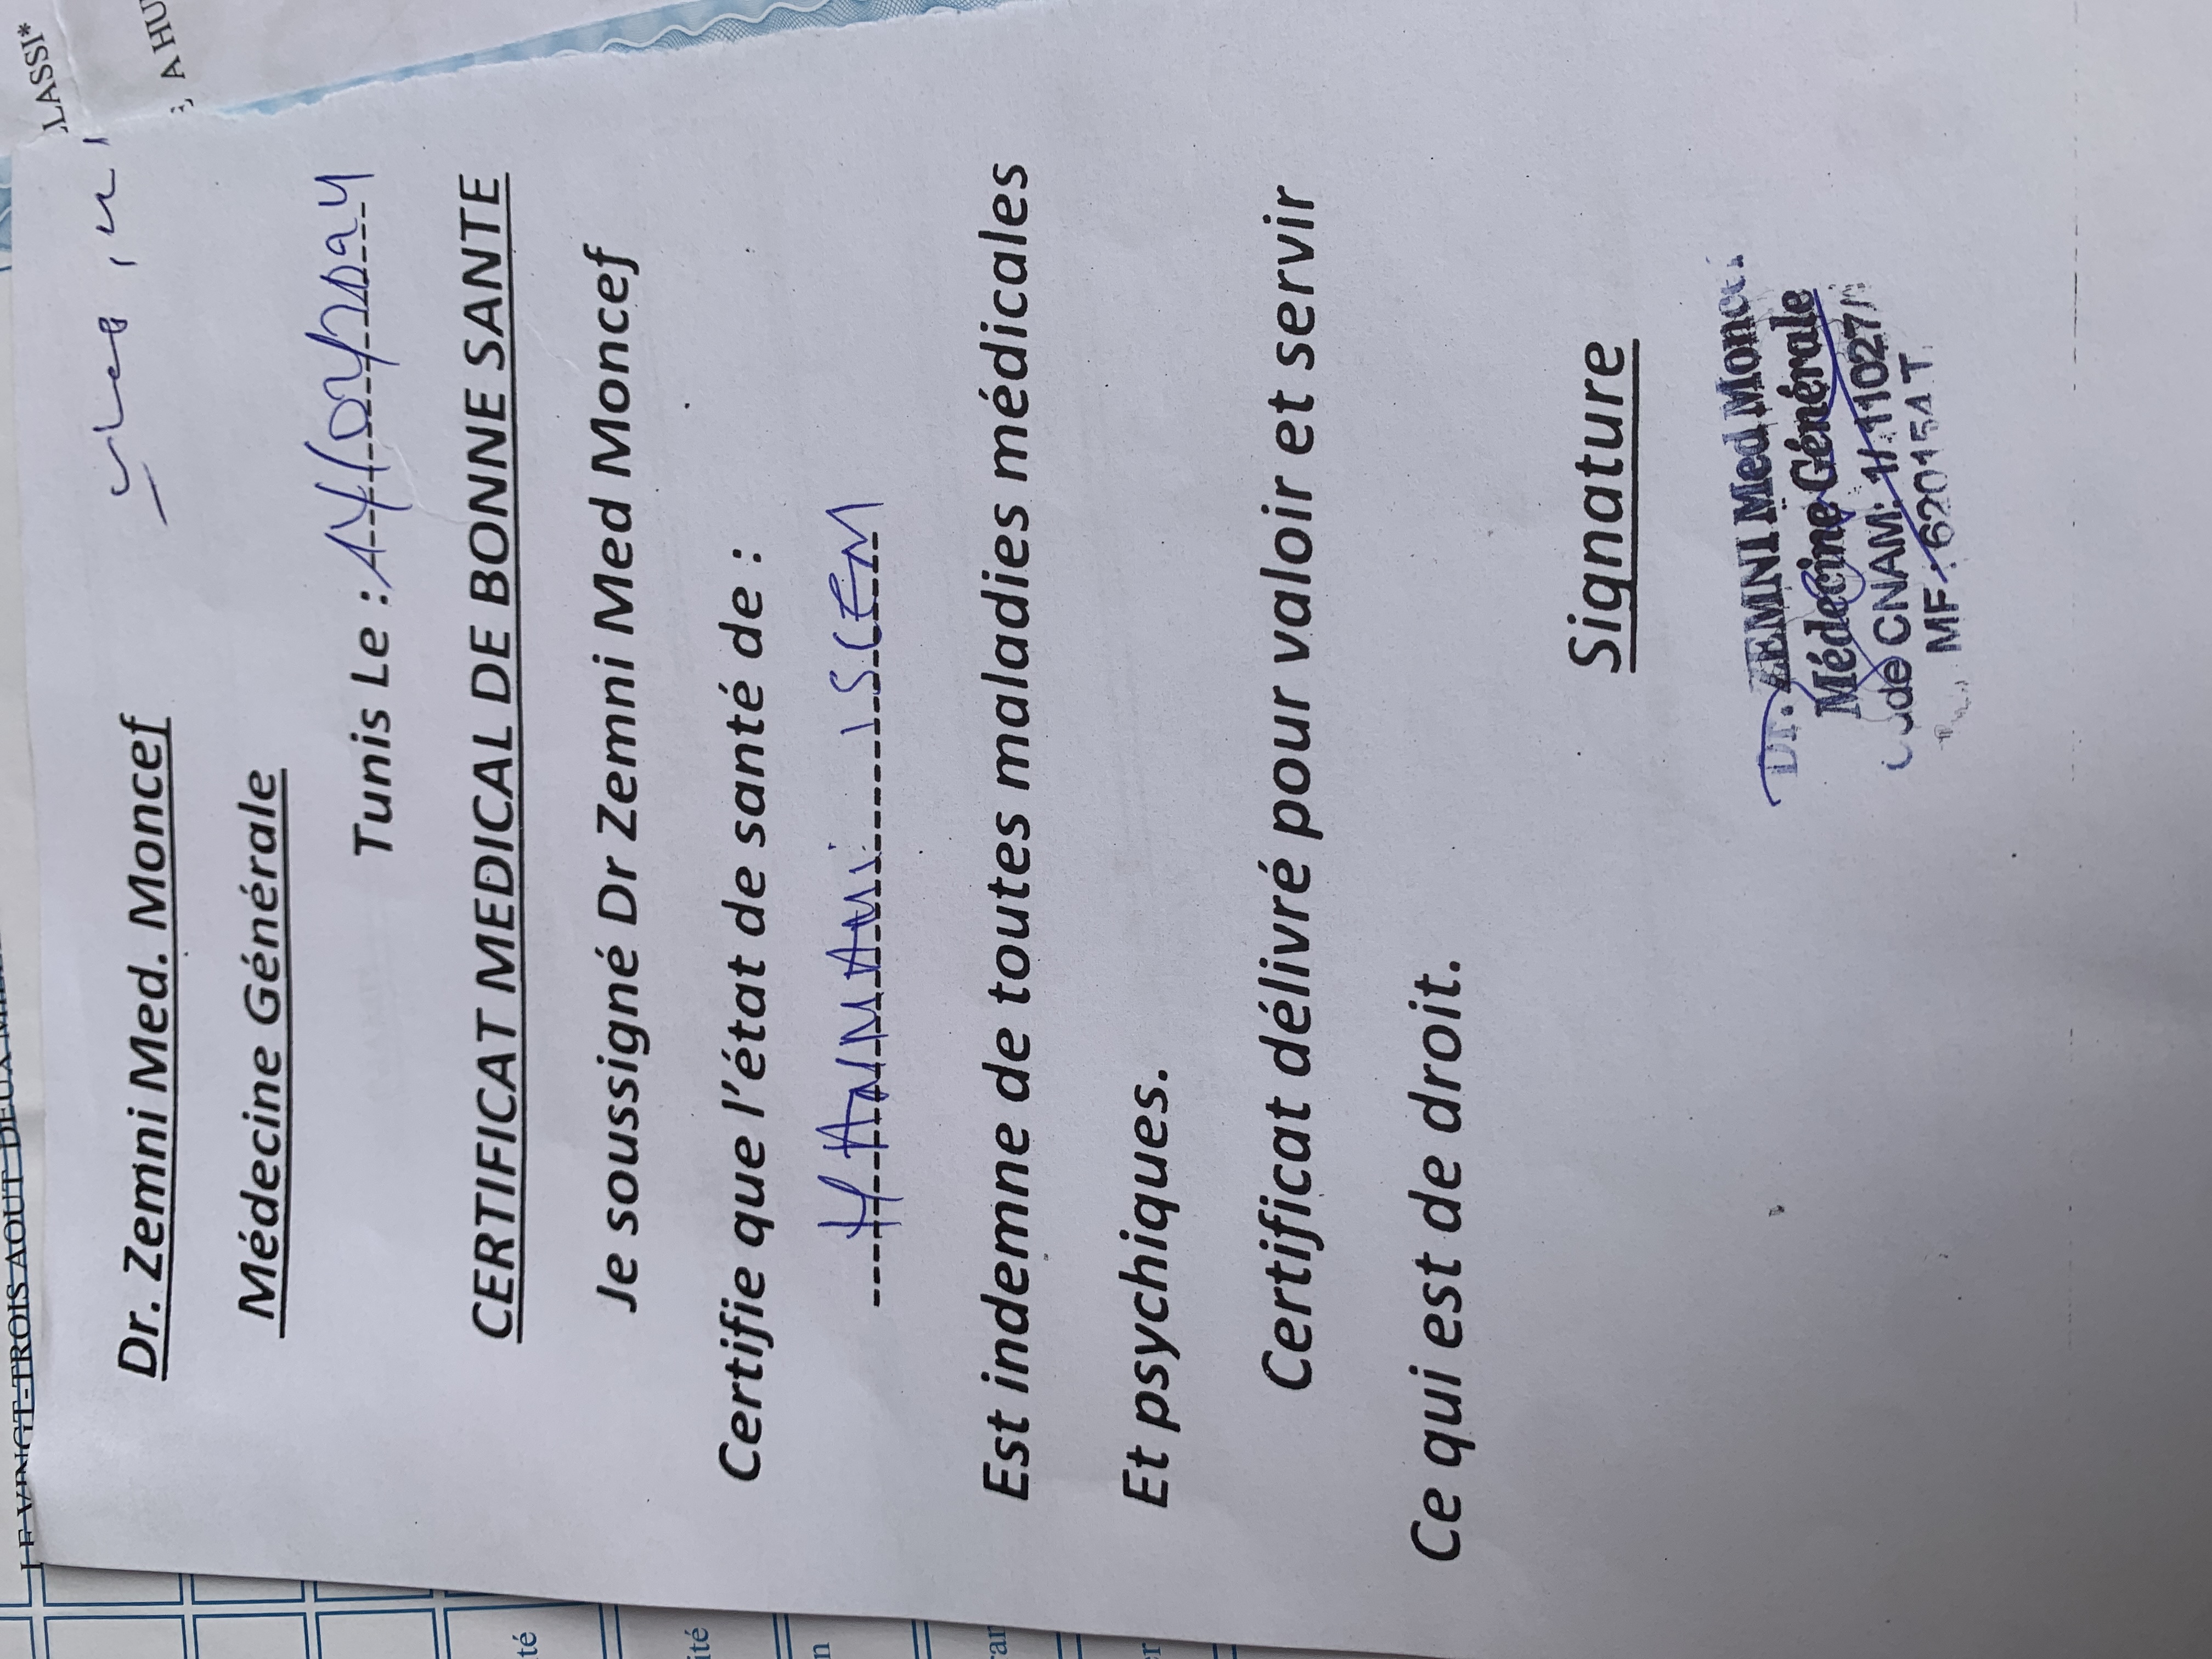 LASSI*
A HU
LE VINGT-TROIS AOUT DEUX
Dr. Zemni Med. Moncef
Médecine Générale
Tunis Le :
CERTIFICAT MEDICAL DE BONNE SANTE
Je soussigné Dr Zemni Med Moncef
Certifie que l'état de santé de :
HAMMAMi ISCEM
Est indemne de toutes maladies médicales
Et psychiques.
Certificat délivré pour valoir et servir
Ce qui est de droit.
Signature
Dr. ZEMNI Med Moncef
Médecine Générale
Code CNAM: 1/11027/
MF: 620154 T
té
ité
n
er